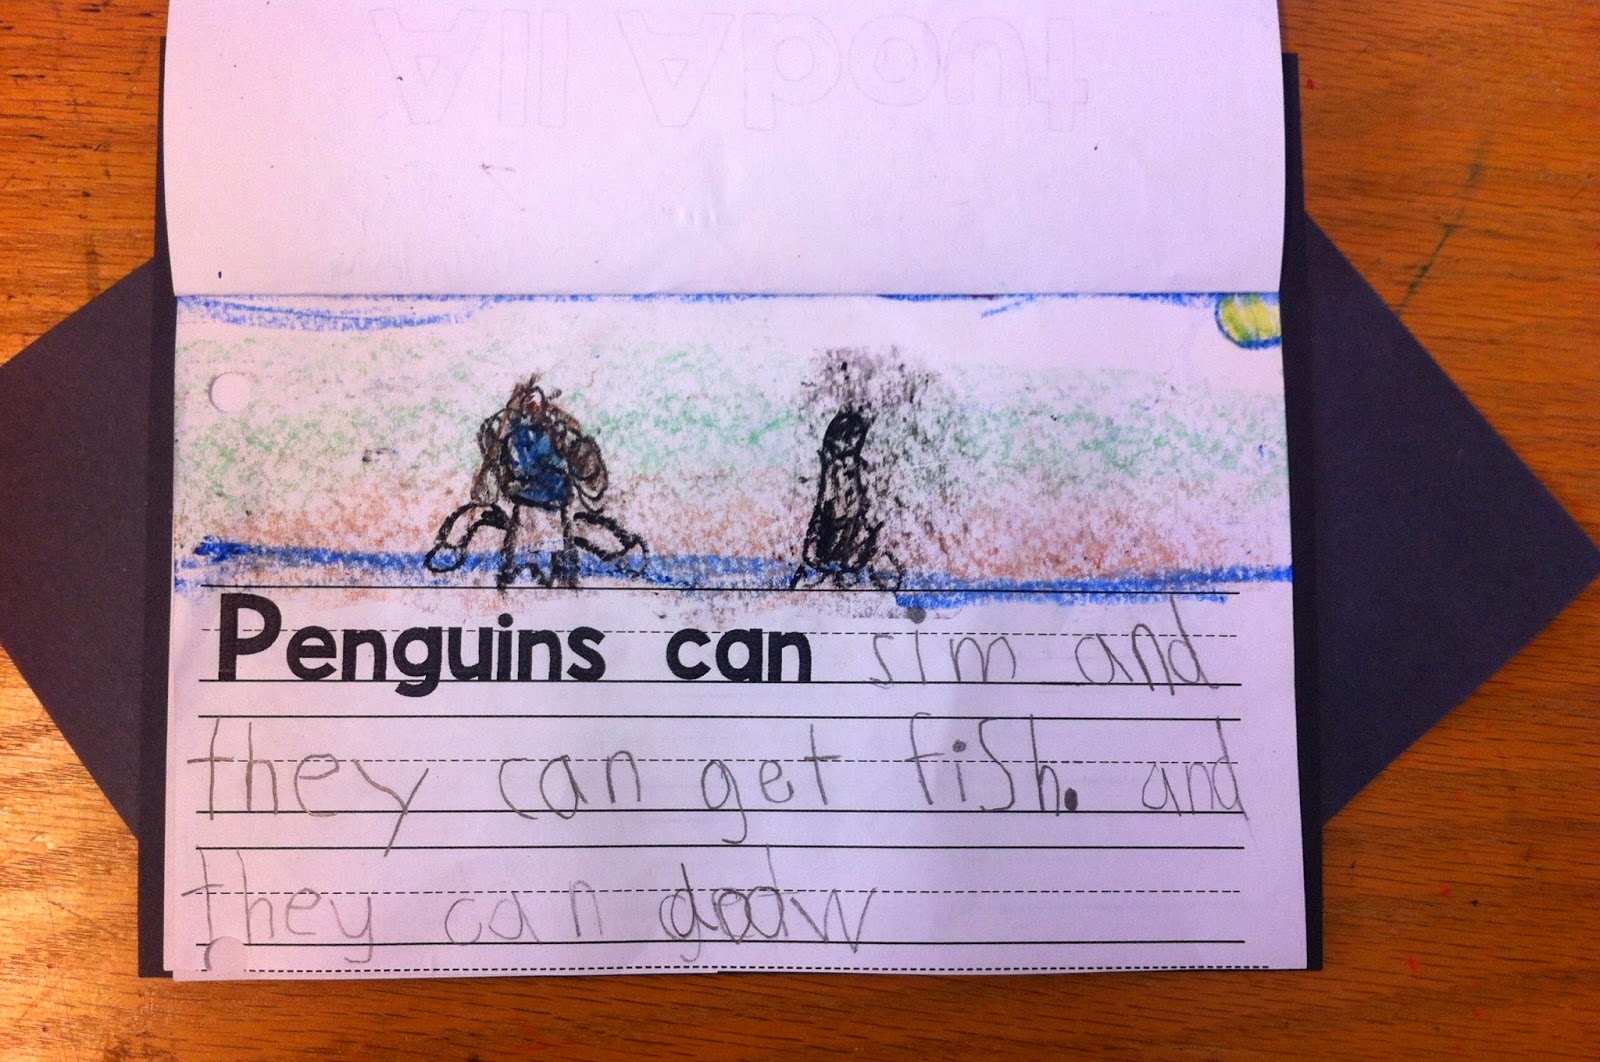 All About
Penguins can sim and
they can get fish. and
they can